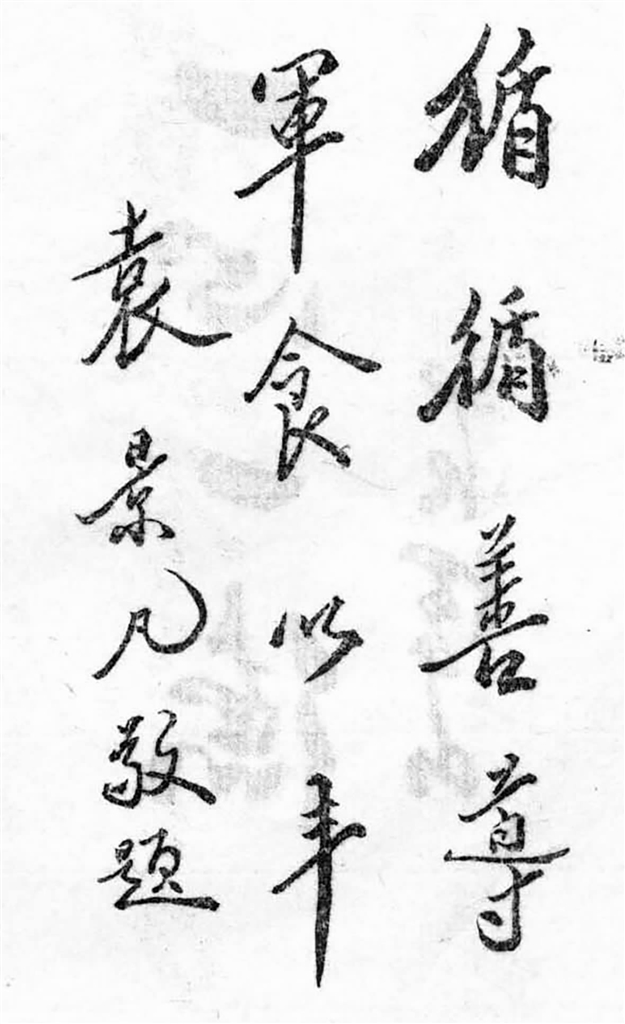 循循善導
軍食以丰
袁景凡敬題